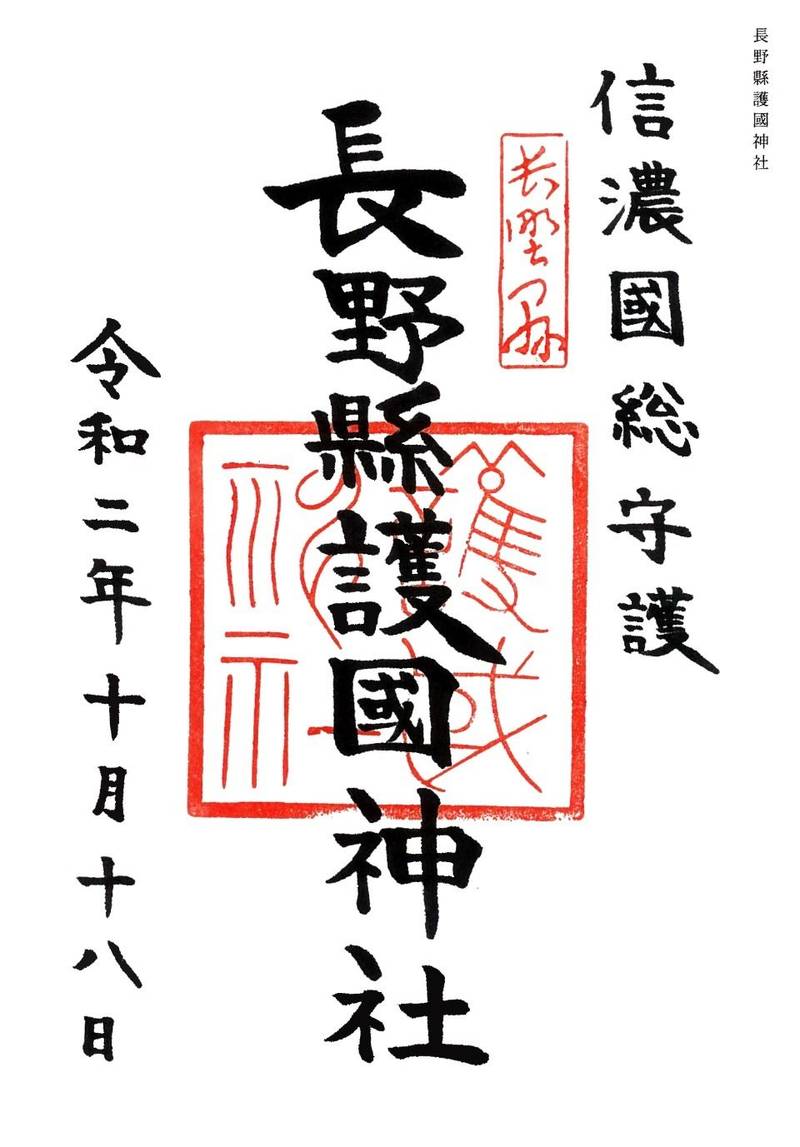 長野縣護國神社
信濃國総守護
长野县
長野縣護國神社
令和二年十月十八日